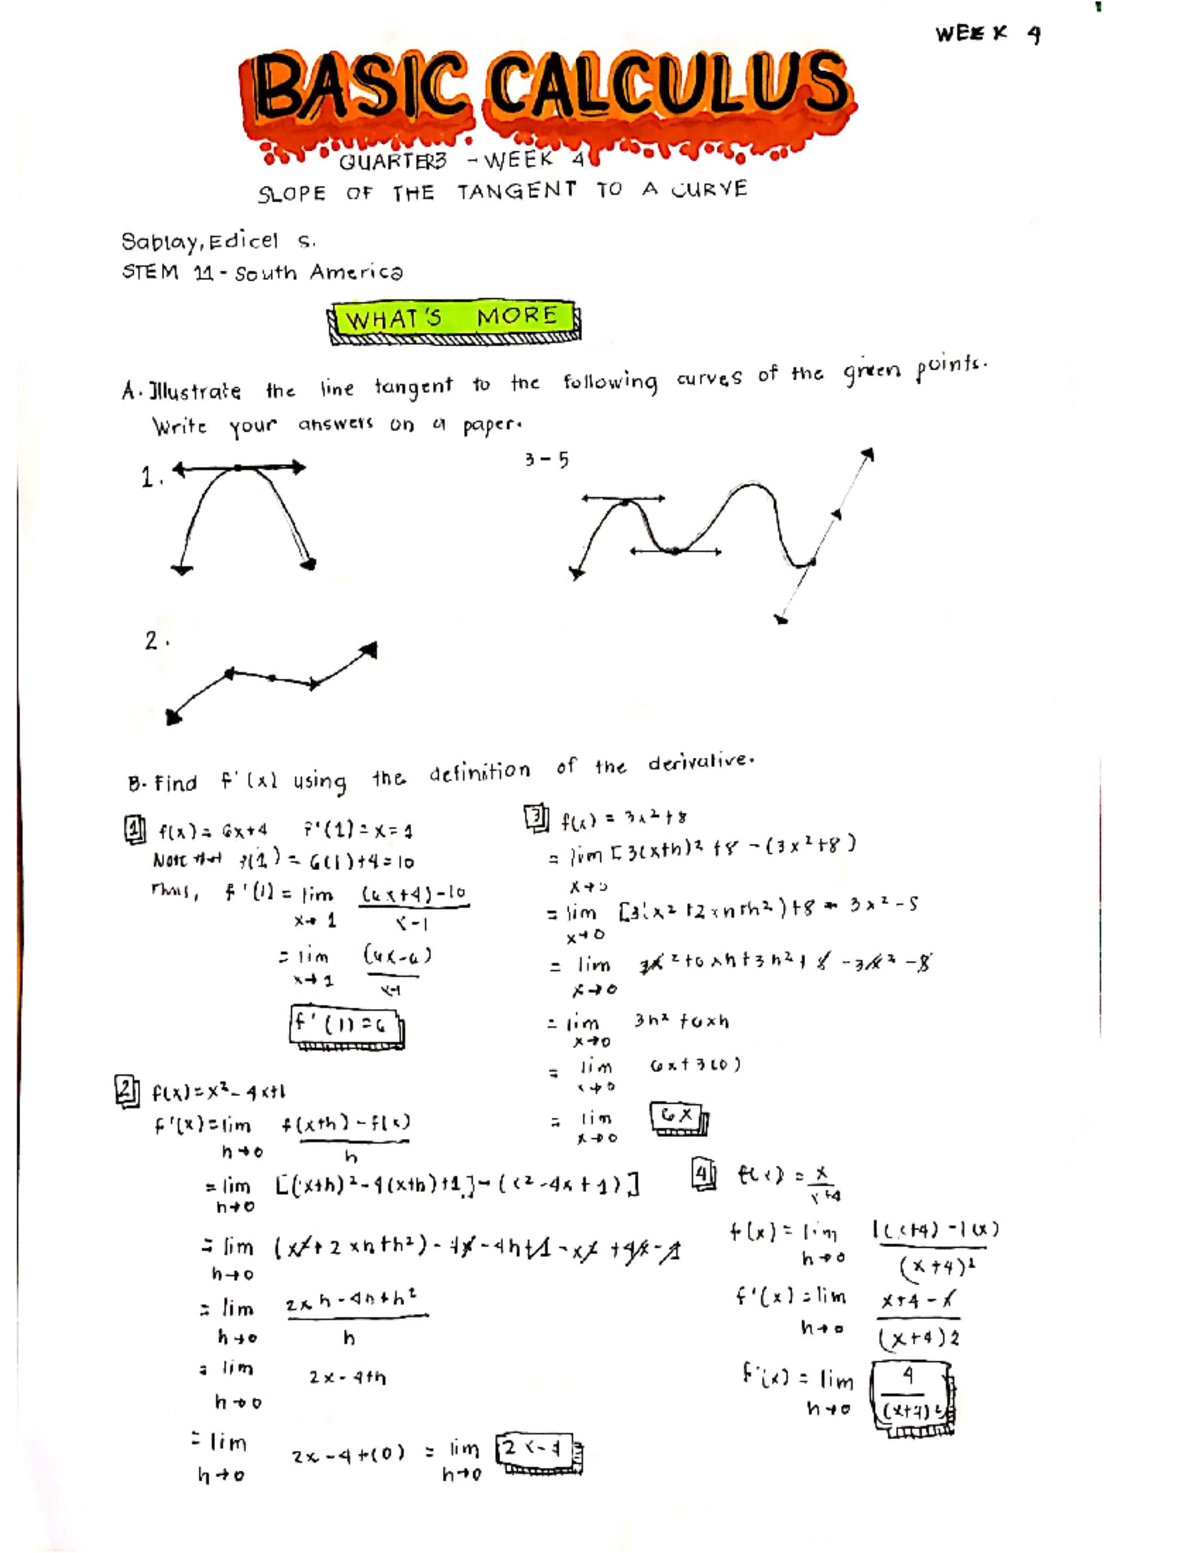 WEEK 4
BASIC CALCULUS
QUARTER3 - WEEK 4
SLOPE OF THE TANGENT TO A CURVE
Sablay, Edicel S.
STEM 11 - South America
WHAT'S MORE
A. Illustrate the line tangent to the following curves of the given points.
Write your answers on a paper.
1.
3 - 5
2.
B. Find f'(x) using the definition of the derivative.
1 f(x) = 6x+4 F'(1) = x = 1
Note that f(1) = 6(1)+4 = 10
Thus, f'(1) = lim (6x+4)-10
x→1 x-1
= lim (6x-6)
x→1 x-1
f'(1) = 6
2 f(x) = x² - 4x+1
f'(x) = lim f(x+h) - f(x)
h→0 h
= lim [(x+h)² - 4(x+h)+1] - (x² - 4x + 1)]
h→0
= lim (x² + 2xh+h²) - 4x - 4h+1 - x² + 4x - 1
h→0
= lim 2xh - 4h + h²
h→0 h
= lim 2x - 4+h
h→0
= lim 2x - 4 + (0) = lim 2x-4
h→0 h→0
3 f(x) = 3x²+8
= lim [3(x+h)² + 8 - (3x²+8)
x→0
= lim [3(x² +2xh+h²)+8 - 3x² - 8
x→0
= lim 3x²+6xh+3h²+8 - 3x² - 8
x→0
= lim 3h² + 6xh
x→0
= lim 6x+3(0)
x→0
= lim 6x
x→0
4 f(x) = x
x+4
f(x) = lim 1(x+4) - 1(x)
h→0 (x+4)²
f'(x) = lim x+4 - x
h→0 (x+4)2
f'(x) = lim 4
h→0 (x+4)²